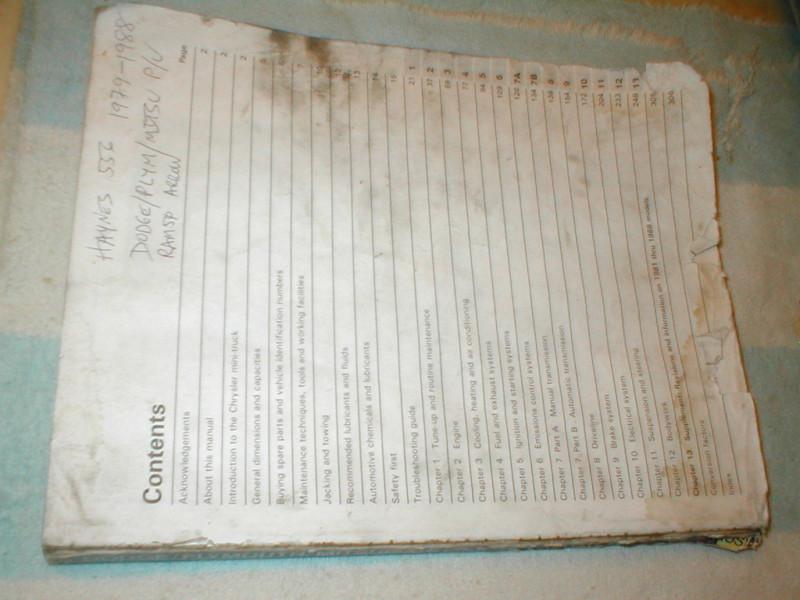 HAYNES 556 1979-1988
DODGE/PLYM/MITSU P/U
RAM50 ARROW
Contents
Page
Acknowledgements 2
About this manual 2
Introduction to the Chrysler mini-truck 2
General dimensions and capacities
Buying spare parts and vehicle identification numbers
Maintenance techniques, tools and working facilities 7
Jacking and towing
Recommended lubricants and fluids
Automotive chemicals and lubricants 13
Safety first 14
Troubleshooting guide 15
Chapter 1 Tune-up and routine maintenance 21 1
Chapter 2 Engine 37 2
Chapter 3 Cooling, heating and air conditioning 69 3
Chapter 4 Fuel and exhaust systems 77 4
Chapter 5 Ignition and starting systems 94 5
Chapter 6 Emissions control systems 6
Chapter 7 Part A Manual transmission 7A
Chapter 7 Part B Automatic transmission 134 7B
Chapter 8 Driveline 138 8
Chapter 9 Brake system 154 9
Chapter 10 Electrical system 172 10
Chapter 11 Suspension and steering 204 11
Chapter 12 Bodywork 233 12
Chapter 13 Supplement: Revisions and information on 1981 thru 1988 models 248 13
Conversion factors
Index 306